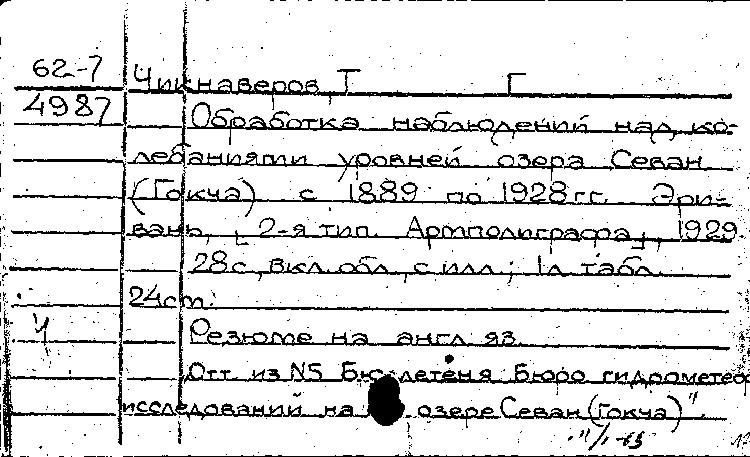 62-7
4987
Чикнаверов, Т Г
Обработка наблюдений над ко-
лебаниями уровней озера Севан
(Гокча) с 1889 по 1928 гг. Эри-
вань, [2-я тип. Армполиграфа], 1929.
28 с., вкл. обл., с илл; 1 л. табл.
24 ст.
Резюме на англ яз.
Отт. из N5 Бюллетеня Бюро гидрометео
исследований на озере Севан (Гокча)".